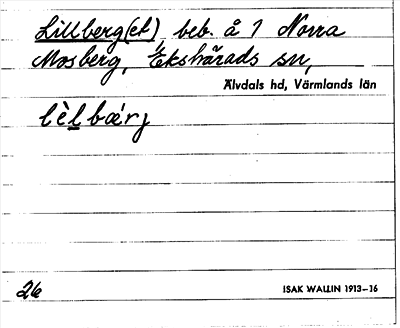 Lillberg(et), beb. å 1 Norra
Mosberg, Ekshärads sn,
Älvdals hd, Värmlands län
lèlbærj
26
ISAK WALLIN 1913–16